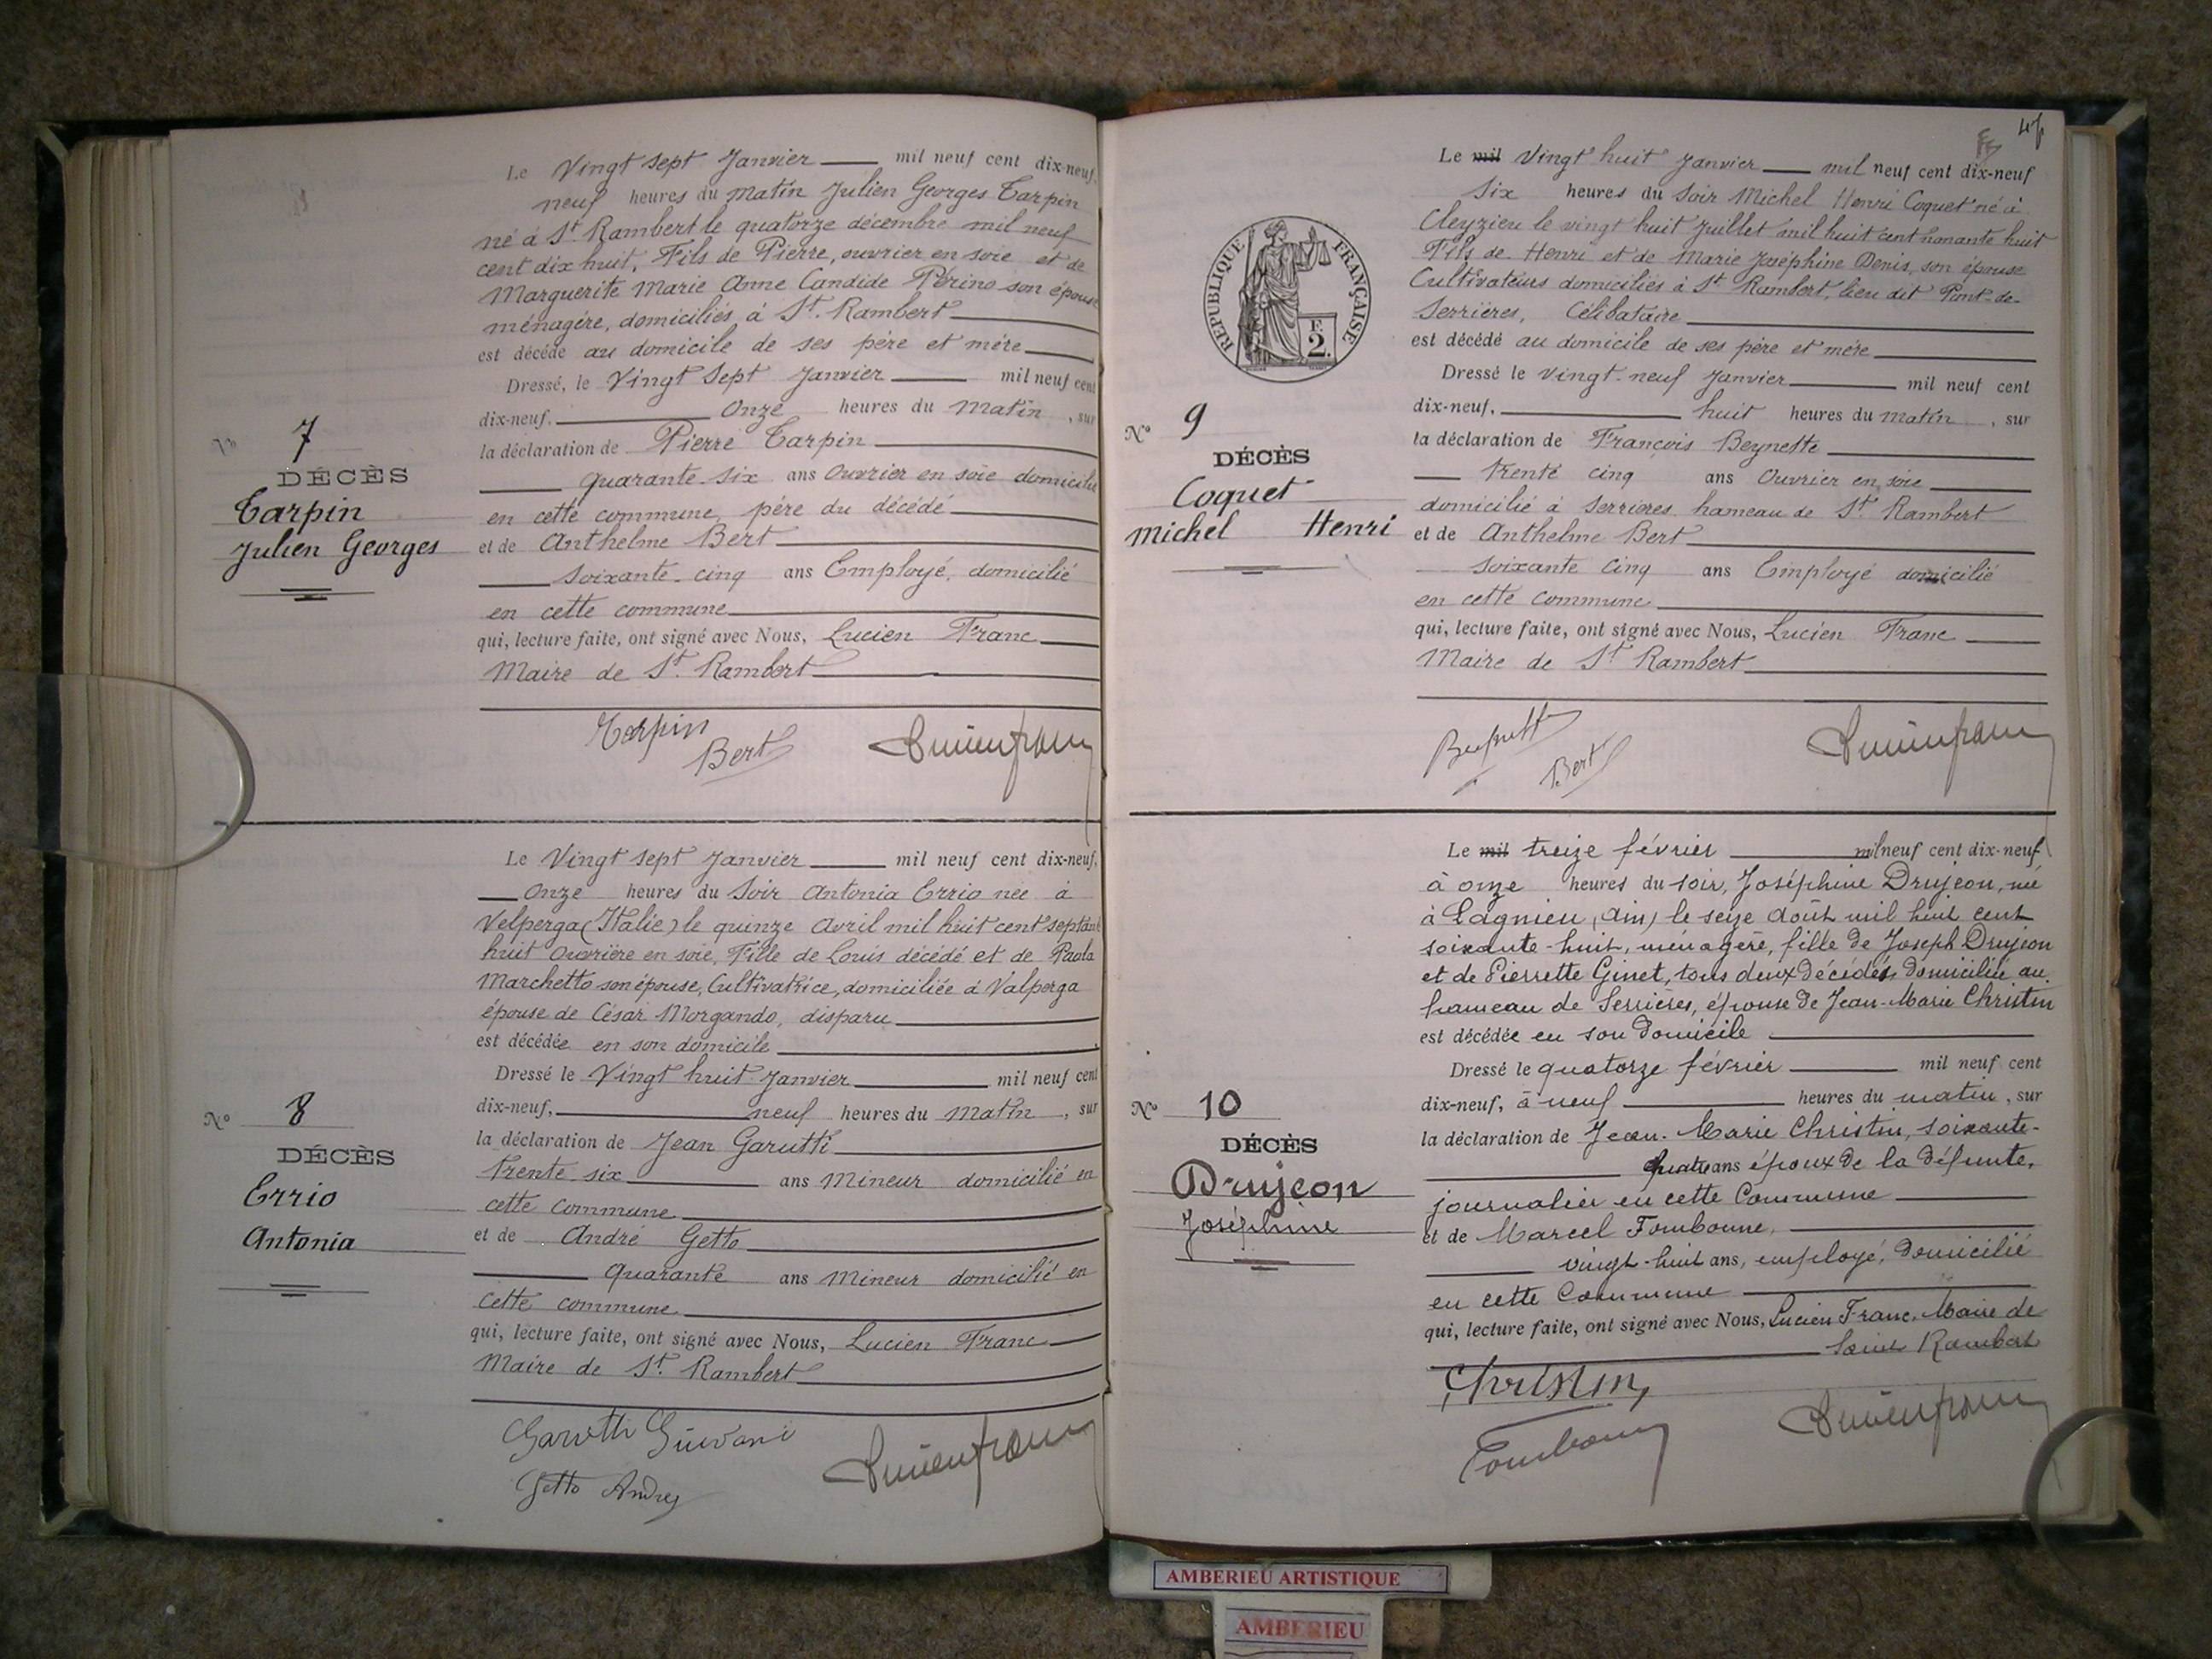 Le Vingt sept Janvier mil neuf cent dix-neuf,
neuf heures du matin Julien Georges Tarpin
né à St Rambert le quatorze décembre mil neuf
cent dix huit, Fils de Pierre, ouvrier en soie et de
Marguerite Marie Anne Candide Périno son épouse
ménagère, domiciliés à St. Rambert
est décédé au domicile de ses père et mère
Dressé, le Vingt Sept Janvier mil neuf cent
dix-neuf, Onze heures du matin, sur
la déclaration de Pierre Tarpin
quarante six ans Ouvrier en soie domicilié
en cette commune, père du décédé
et de Anthelme Bert
soixante cinq ans Employé, domicilié
en cette commune
qui, lecture faite, ont signé avec Nous, Lucien Franc
Maire de St. Rambert
No 7
DÉCÈS
Tarpin
Julien Georges
Tarpin
Bert
Lucien Franc
Le Vingt sept Janvier mil neuf cent dix-neuf,
Onze heures du Soir Antonia Errio née à
Velperga (Italie) le quinze Avril mil huit cent septante
huit Ouvrière en soie, Fille de Louis décédé et de Paola
Marchetto son épouse, Cultivatrice, domiciliée à Valperga
épouse de César Morgando, disparu
est décédée en son domicile
Dressé le Vingt huit Janvier mil neuf cent
dix-neuf, neuf heures du Matin, sur
la déclaration de Jean Garutti
trente six ans Mineur domicilié en
cette commune
et de André Getto
Quarante ans Mineur domicilié en
cette commune
qui, lecture faite, ont signé avec Nous, Lucien Franc
Maire de St. Rambert
No 8
DÉCÈS
Errio
Antonia
Garutti
Getto
Lucien Franc
Le mil Vingt huit Janvier mil neuf cent dix-neuf
Six heures du Soir Michel Henri Coquet né à
Cleyzieu le vingt huit Juillet mil huit cent nonante huit
Fils de Henri et de Marie Joséphine Denis, son épouse
Cultivateurs domiciliés à St Rambert, lieu dit Pont-de-
Serrières, Célibataire
est décédé au domicile de ses père et mère
Dressé le vingt-neuf Janvier mil neuf cent
dix-neuf, huit heures du matin, sur
la déclaration de François Beynette
trente cinq ans Ouvrier en soie
domicilié à Serrières hameau de St Rambert
et de Anthelme Bert
soixante cinq ans Employé domicilié
en cette commune
qui, lecture faite, ont signé avec Nous, Lucien Franc
Maire de St Rambert
REPUBLIQUE FRANÇAISE
F.
2.
No 9
DÉCÈS
Coquet
Michel Henri
Bert
Lucien Franc
Le mil treize février mil neuf cent dix-neuf
à onze heures du soir, Joséphine Drujeon, née
à Lagnieu (Ain) le seize août mil huit cent
soixante-huit, ménagère, fille de Joseph Drujeon
et de Pierrette Ginet, tous deux décédés domiciliée au
hameau de Serrières, épouse de Jean-Marie Christin
est décédée en son domicile
Dressé le quatorze février mil neuf cent
dix-neuf, à neuf heures du matin, sur
la déclaration de Jean-Marie Christin, soixante-
quatre ans époux de la défunte,
journalier en cette Commune
et de Marcel Fombonne,
vingt-huit ans, employé, domicilié
en cette Commune
qui, lecture faite, ont signé avec Nous, Lucien Franc, Maire de
Saint Rambert
No 10
DÉCÈS
Drujeon
Joséphine
Christin
Fombonne
Lucien Franc
AMBERIEU ARTISTIQUE
AMBERIEU